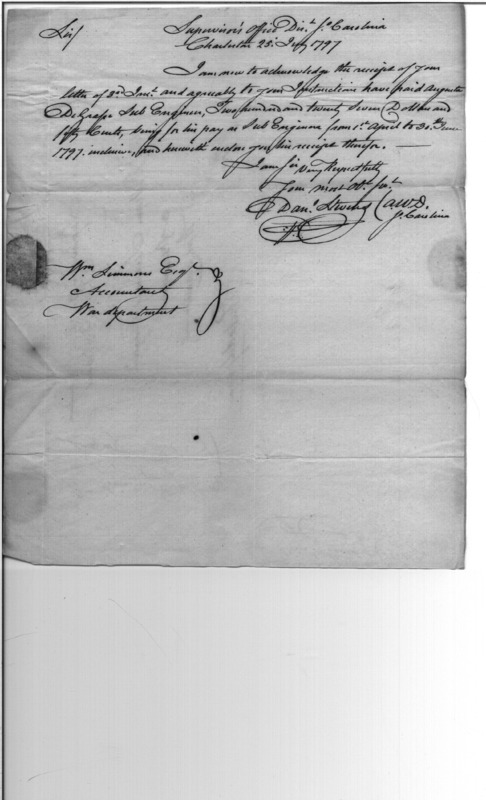 Sir/ Supervisor's Office Dist. So. Carolina
Charleston 25: July 1797
I am now to acknowledge the receipt of your
letter of 3rd. Inst. and agreeably to your Instructions have paid Auguste
De Grasse Sub Engineer, Two hundred and twenty Seven Dollars and
fifty Cents, being for his pay as Sub Engineer from 1st. April to 30th. June
1797. inclusive, and herewith enclose you his receipt therefor. —
I am Sir
Very Respectfully
Your most Obt. Sert.
Danl. Stevens
So. Carolina
Wm. Simmons Esqr.
Accountant
War department